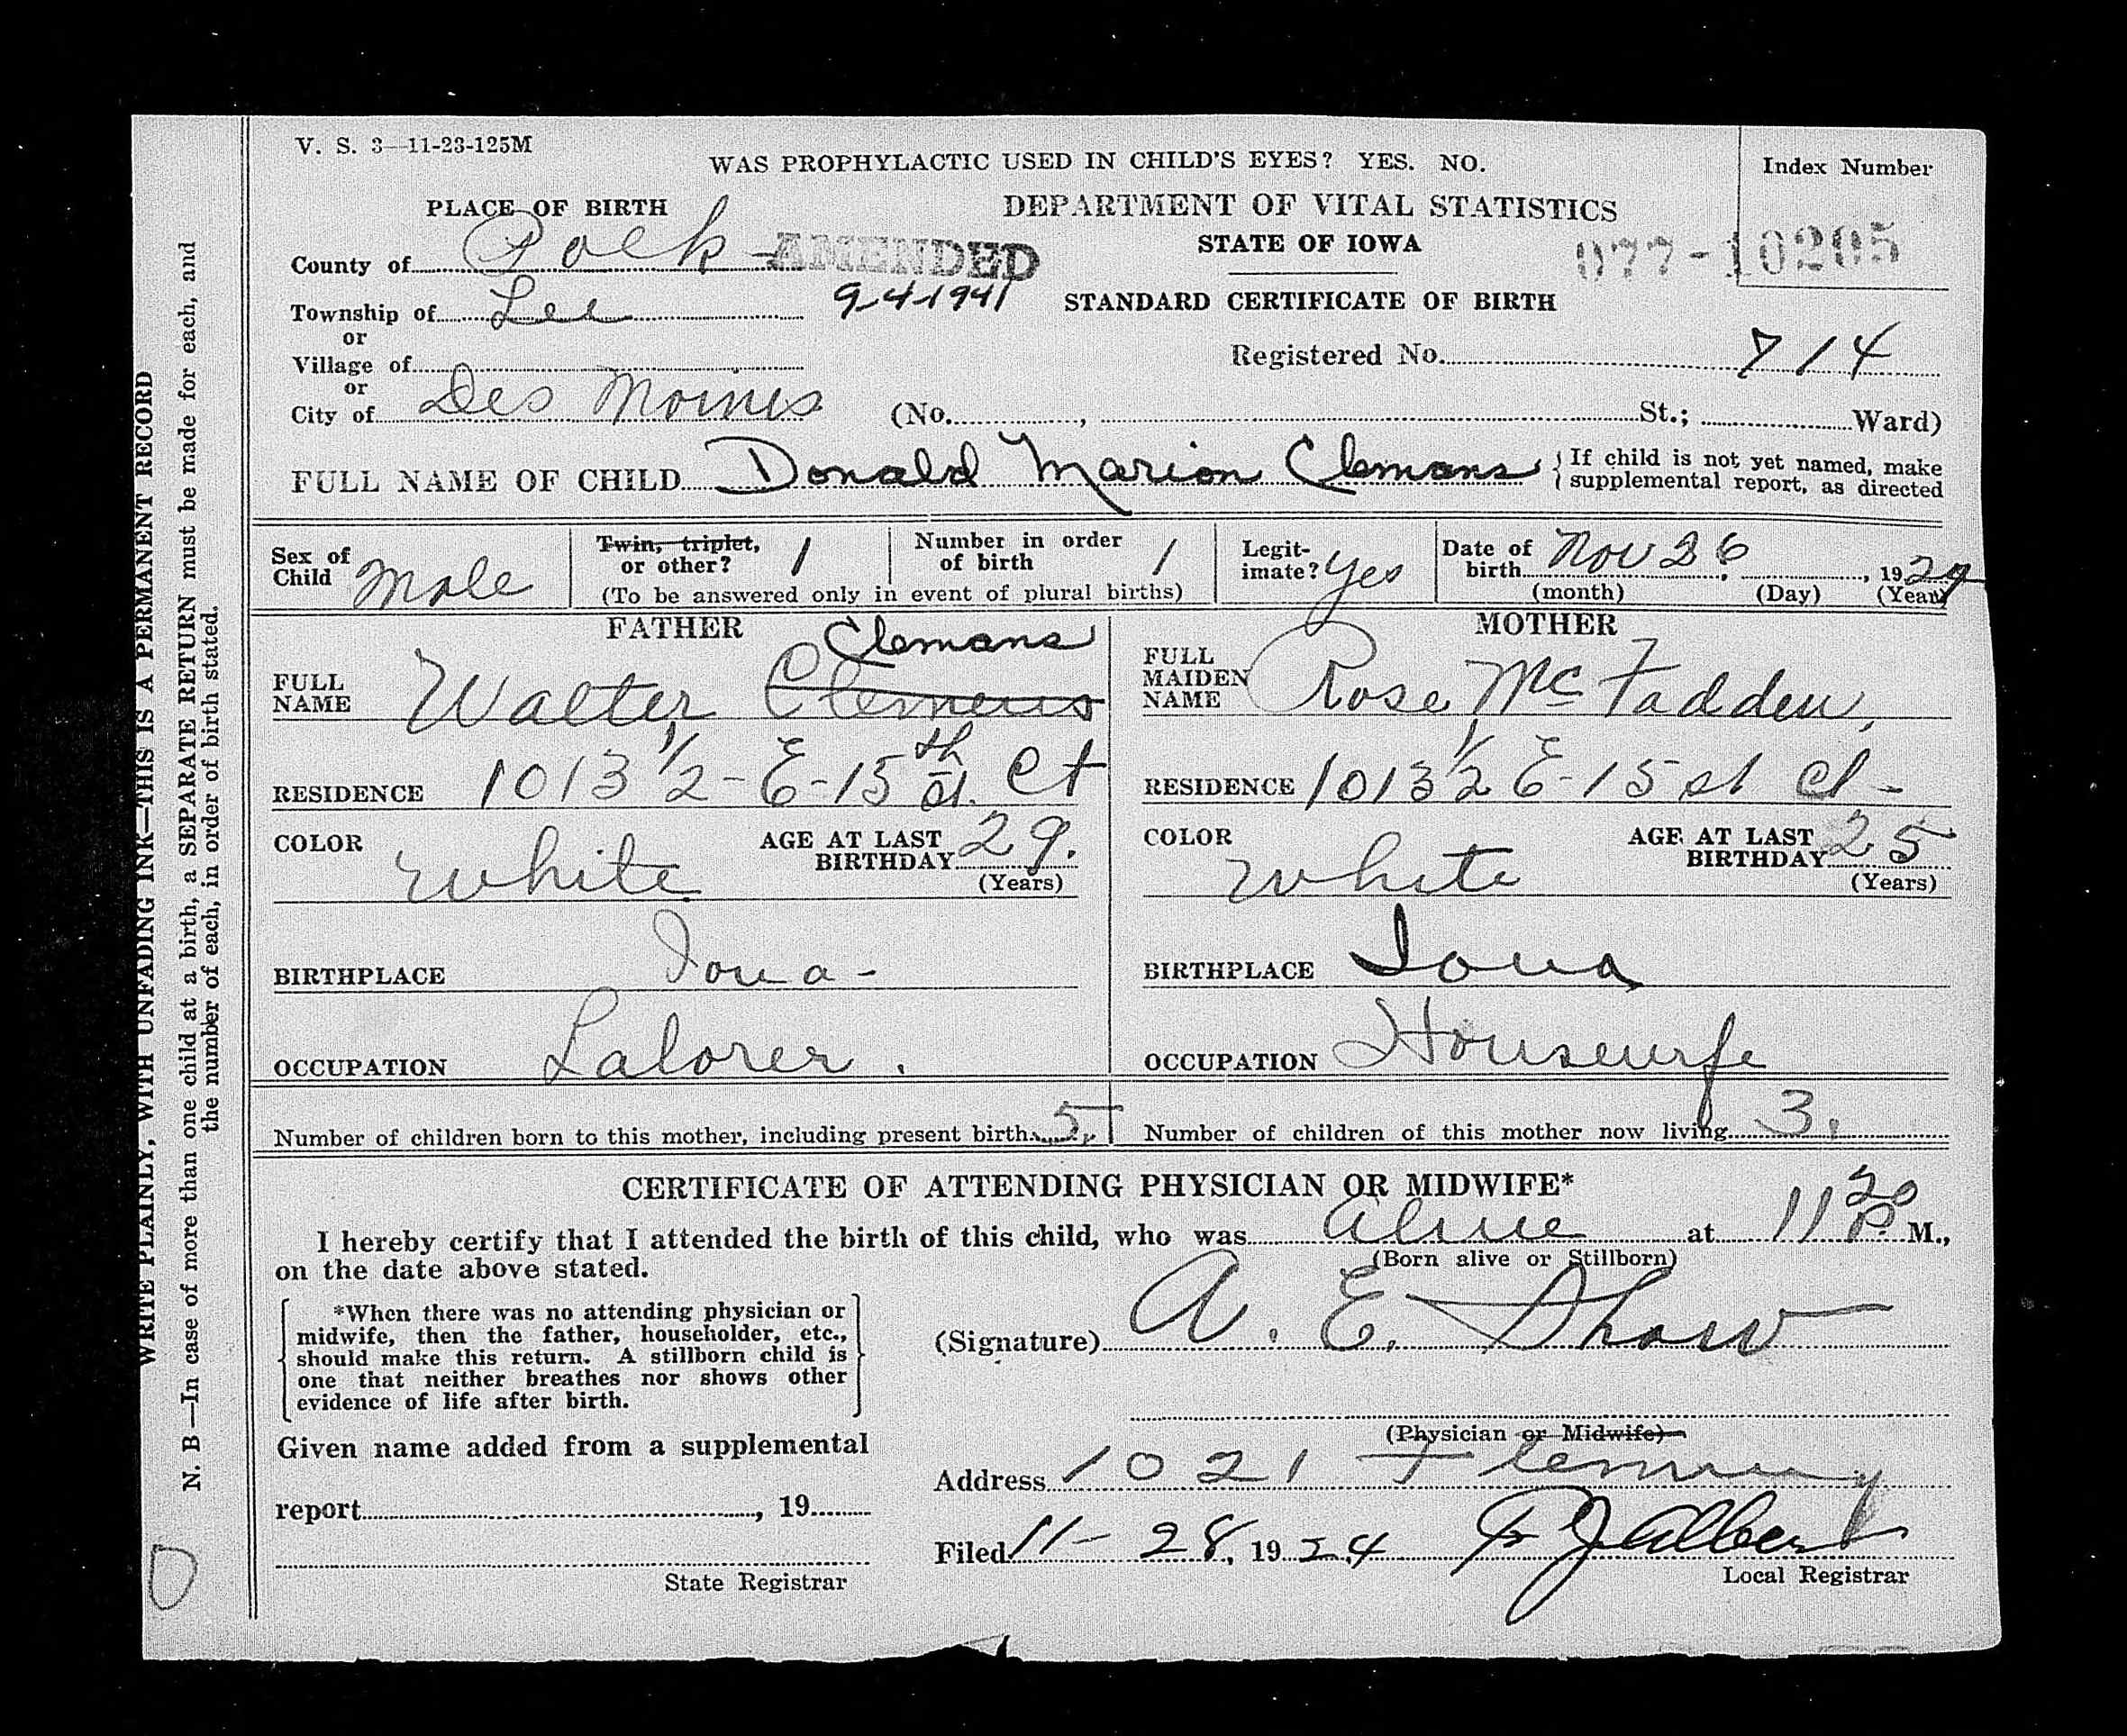 V. S. 3—11-23-125M
WAS PROPHYLACTIC USED IN CHILD'S EYES? YES. NO.
Index Number
PLACE OF BIRTH
DEPARTMENT OF VITAL STATISTICS
STATE OF IOWA
077-10205
County of Polk
AMENDED
9-4-1941
Township of Lee
STANDARD CERTIFICATE OF BIRTH
or
Village of
Registered No. 714
or
City of Des Moines (No. , St.; Ward)
FULL NAME OF CHILD Donald Marion Clemans
{If child is not yet named, make
supplemental report, as directed
Sex of Child Male
Twin, triplet, or other? 1
Number in order of birth 1
(To be answered only in event of plural births)
Legitimate? Yes
Date of birth Nov 26, , 1924
(month) (Day) (Year)
FATHER
Clemans
FULL NAME Walter Clemens
RESIDENCE 1013 1/2 - E - 15th St. Ct
COLOR White
AGE AT LAST BIRTHDAY 29.
(Years)
BIRTHPLACE Iowa -
OCCUPATION Laborer.
MOTHER
FULL MAIDEN NAME Rose McFadden,
RESIDENCE 1013 1/2 E - 15 st Ct -
COLOR White
AGE AT LAST BIRTHDAY 25
(Years)
BIRTHPLACE Iowa
OCCUPATION Housewife
Number of children born to this mother, including present birth 5.
Number of children of this mother now living 3.
CERTIFICATE OF ATTENDING PHYSICIAN OR MIDWIFE*
I hereby certify that I attended the birth of this child, who was alive at 11 20 P. M.,
(Born alive or Stillborn)
on the date above stated.
*When there was no attending physician or
midwife, then the father, householder, etc.,
should make this return. A stillborn child is
one that neither breathes nor shows other
evidence of life after birth.
(Signature) A. E. Shaw
(Physician or Midwife)
Given name added from a supplemental
report , 19
State Registrar
Address 1021 Fleming
Filed 11 - 28, 1924 Albert
Local Registrar
WRITE PLAINLY, WITH UNFADING INK—THIS IS A PERMANENT RECORD
N. B—In case of more than one child at a birth, a SEPARATE RETURN must be made for each, and
the number of each, in order of birth stated.